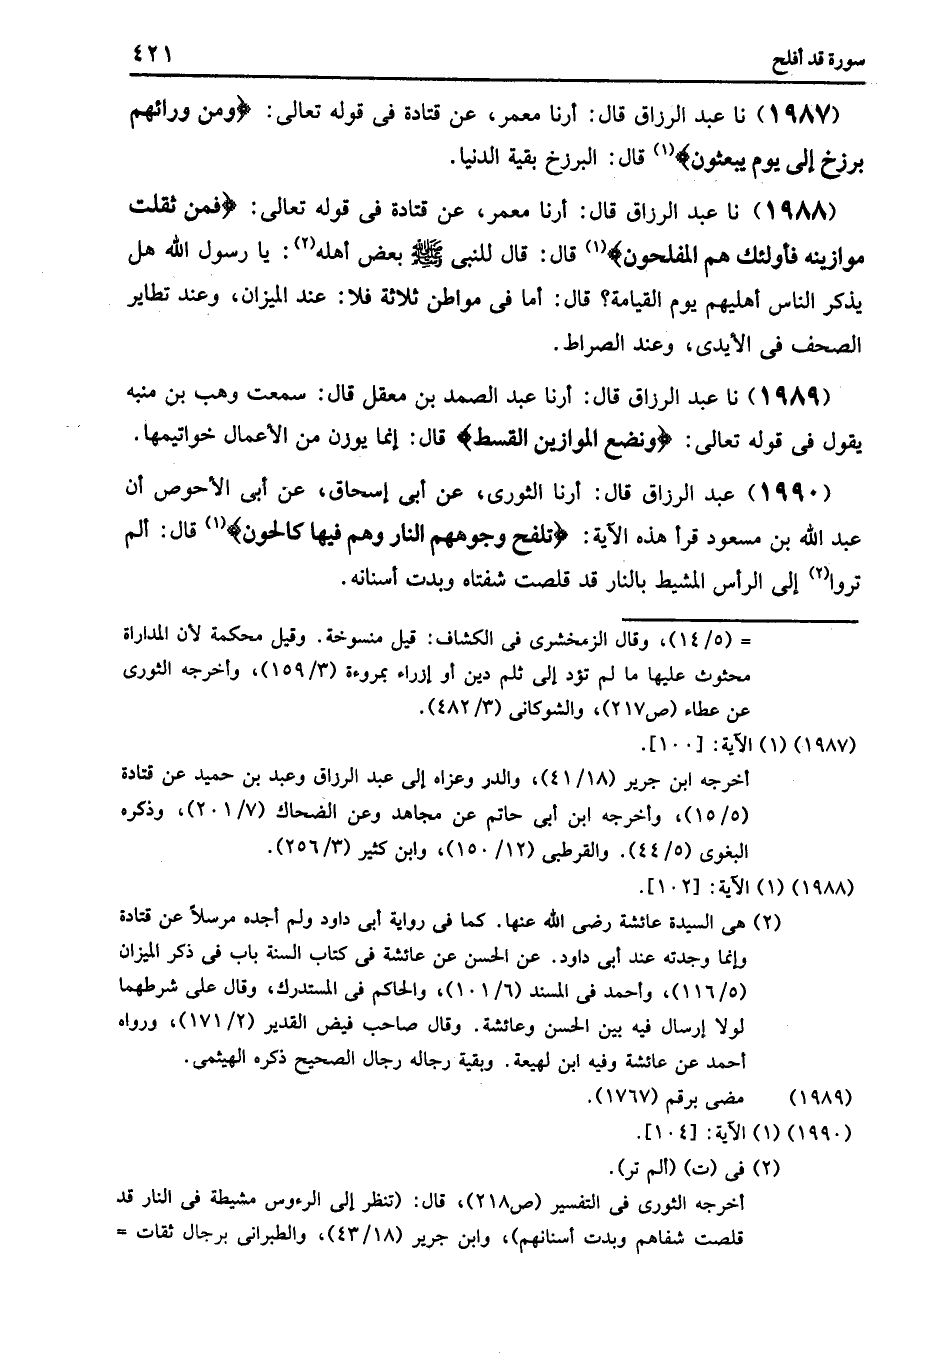 سورة قد أفلح ٤٢١
(١٩٨٧) نا عبد الرزاق قال: أرنا معمر، عن قتادة فى قوله تعالى: ﴿ومن ورائهم
برزخ إلى يوم يبعثون﴾(١) قال: البرزخ بقية الدنيا.
(١٩٨٨) نا عبد الرزاق قال: أرنا معمر، عن قتادة فى قوله تعالى: ﴿فمن ثقلت
موازينه فأولئك هم المفلحون﴾(١) قال: قال للنبى ﷺ بعض أهله(٢): يا رسول الله هل
يذكر الناس أهليهم يوم القيامة؟ قال: أما فى مواطن ثلاثة فلا: عند الميزان، وعند تطاير
الصحف فى الأيدى، وعند الصراط.
(١٩٨٩) نا عبد الرزاق قال: أرنا عبد الصمد بن معقل قال: سمعت وهب بن منبه
يقول فى قوله تعالى: ﴿ونضع الموازين القسط﴾ قال: إنما يوزن من الأعمال خواتيمها.
(١٩٩٠) عبد الرزاق قال: أرنا الثورى، عن أبى إسحاق، عن أبى الأحوص أن
عبد الله بن مسعود قرأ هذه الآية: ﴿تلفح وجوههم النار وهم فيها كالحون﴾(١) قال: ألم
تروا(٢) إلى الرأس المشيط بالنار قد قلصت شفتاه وبدت أسنانه.
= (١٤/٥)، وقال الزمخشرى فى الكشاف: قيل منسوخة. وقيل محكمة لأن المداراة
محثوث عليها ما لم تؤد إلى ثلم دين أو إزراء بمروءة (١٥٩/٣)، وأخرجه الثورى
عن عطاء (ص٢١٧)، والشوكانى (٤٨٢/٣).
(١٩٨٧) (١) الآية: [١٠٠].
أخرجه ابن جرير (٤١/١٨)، والدر وعزاه إلى عبد الرزاق وعبد بن حميد عن قتادة
(١٥/٥)، وأخرجه ابن أبى حاتم عن مجاهد وعن الضحاك (٢٠١/٧)، وذكره
البغوى (٤٤/٥). والقرطبى (١٥٠/١٢)، وابن كثير (٢٥٦/٣).
(١٩٨٨) (١) الآية: [١٠٢].
(٢) هى السيدة عائشة رضى الله عنها. كما فى رواية أبى داود ولم أجده مرسلاً عن قتادة
وإنما وجدته عند أبى داود. عن الحسن عن عائشة فى كتاب السنة باب فى ذكر الميزان
(١١٦/٥)، وأحمد فى المسند (١٠١/٦)، والحاكم فى المستدرك، وقال على شرطهما
لولا إرسال فيه بين الحسن وعائشة. وقال صاحب فيض القدير (١٧١/٢)، ورواه
أحمد عن عائشة وفيه ابن لهيعة. وبقية رجاله رجال الصحيح ذكره الهيثمى.
(١٩٨٩) مضى برقم (١٧٦٧).
(١٩٩٠) (١) الآية: [١٠٤].
(٢) فى (ت) (ألم تر).
أخرجه الثورى فى التفسير (ص٢١٨)، قال: (تنظر إلى الرءوس مشيطة فى النار قد
قلصت شفاهم وبدت أسنانهم)، وابن جرير (٤٣/١٨)، والطبرانى برجال ثقات =